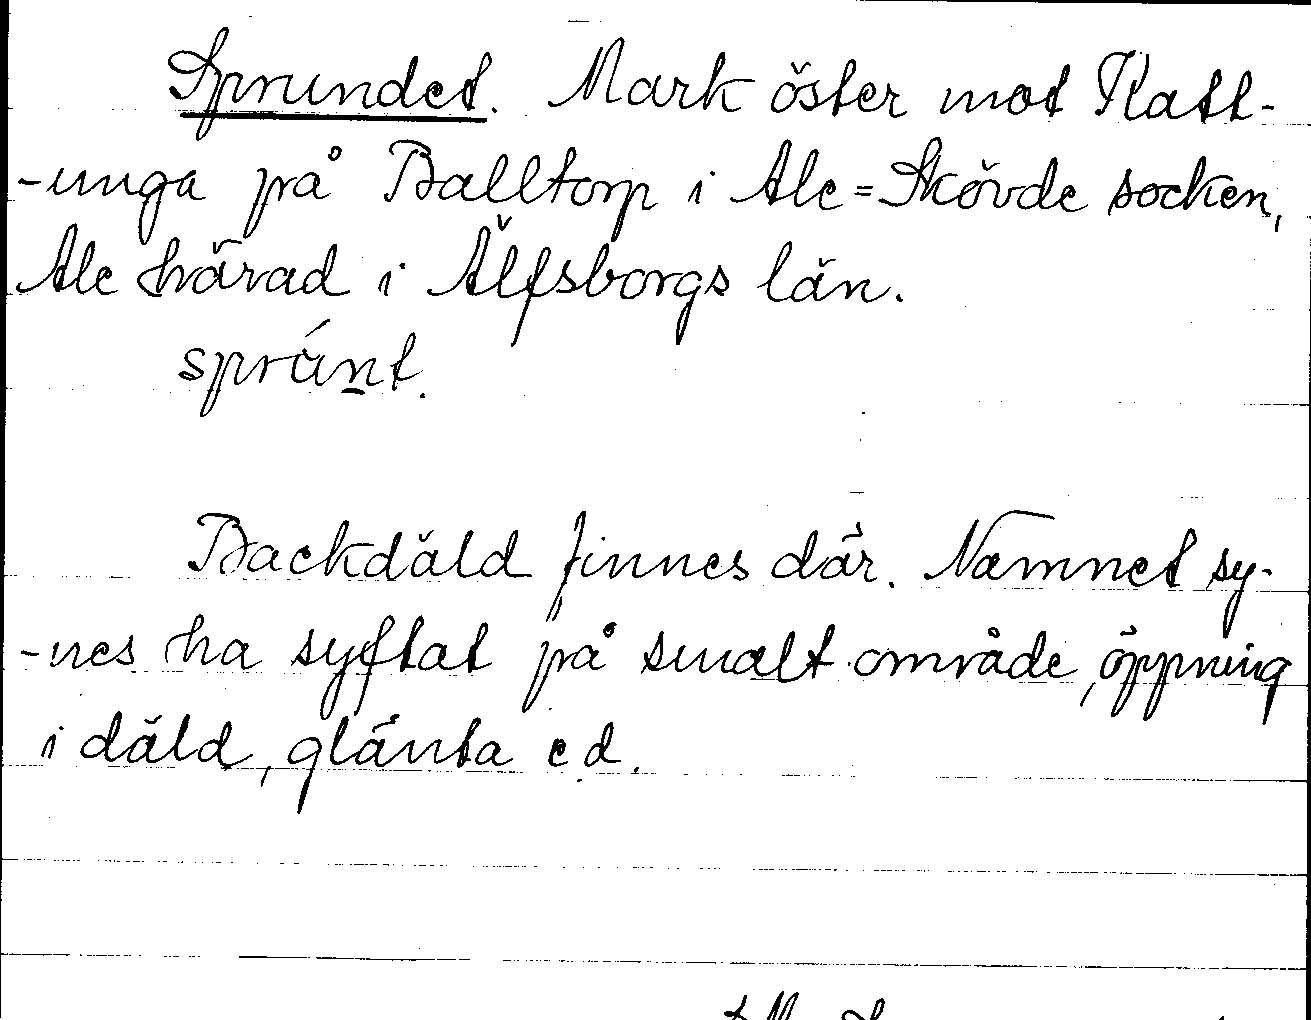 Sprundet. Mark öster mot Katt-
-unga på Balltorp i Ale=Skövde socken,
Ale härad i Älfsborgs län.
sprúnt.
Backdäld finnes där. Namnet sy-
-nes ha syftat på smalt område, öppning
i däld, glänta e.d.